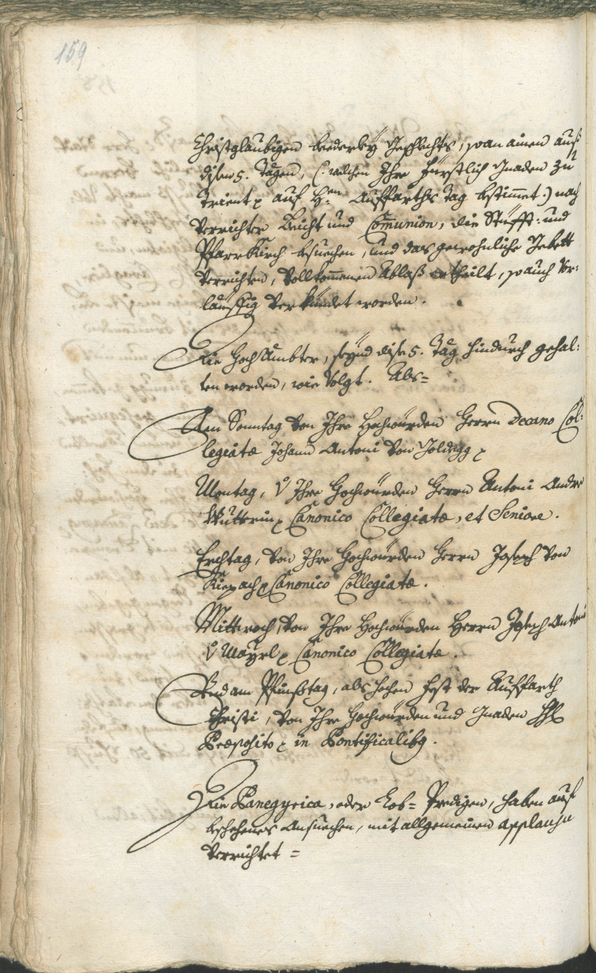 159
Christglaubigen beederley Geschlechts, so an ainen auß
disen 5. Tägen, (: welchen Ihro Fürstlich Gnaden zu
Trient auf Auffarths Tag bestimmet :) nach
verrichter Beicht und Comunion, die Stüfft- und
Pfarrkirch besuechen, und das gewohnliche Gebett
verrichten, vollkommenen Ablaß ertheilt, so auch vor-
läuffig verkündet worden.
Die Hoch Ämbter, seynd dise 5. Tag hindurch gehal-
ten worden, wie volgt. Als=
Am Sonntag von Ihro Hochwürden Herrn Decano Col-
legiatæ Johann Antoni von
Montag, v Ihro Hochwürden Herrn Antoni Andre
Canonico Collegiatæ, et Seniore.
Erchtag, von Ihro Hochwürden Herrn Joseph von
Canonico Collegiatæ.
Mittwoch, von Ihro Hochwürden Herrn Joseph Antoni
v Mayrl Canonico Collegiatæ.
Und am Pfinßtag, als hohen Fest der Auffarth
Christi, von Ihro Hochwürden und Gnaden
Præposito in Pontificalibus.
Die Panegyrica, oder Lob= Predigen, haben auf
beschehenes Ansuechen, mit allgemeinen applausu
verrichtet =